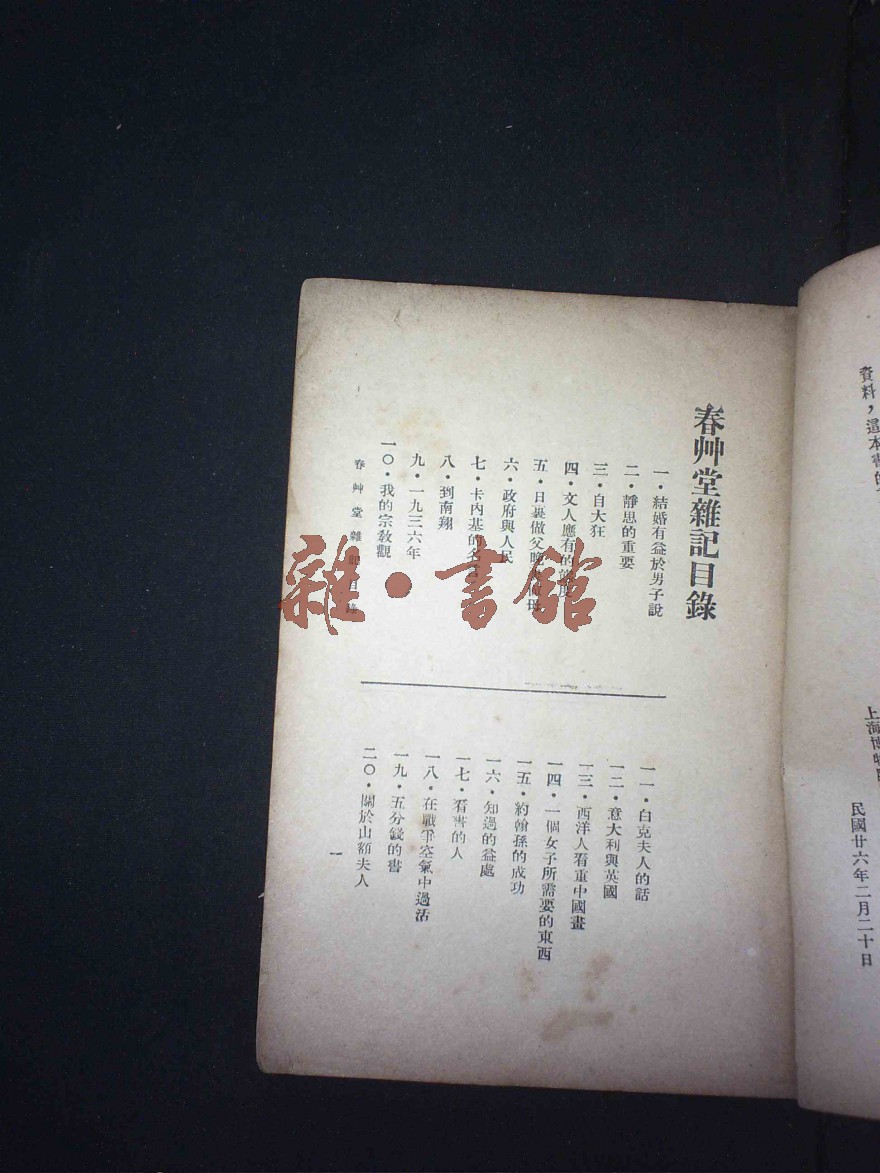 資料，這本書的
上海博物
民國廿六年二月二十日
春艸堂雜記目錄
一・結婚有益於男子說
二・靜思的重要
三・自大狂
四・文人應有的態度
五・日裏做父晚
六・政府與人民
七・卡內基的名言
八・到南翔
九・一九三六年
一〇・我的宗敎觀
一一・白克夫人的話
一二・意大利與英國
一三・西洋人看重中國畫
一四・一個女子所需要的東西
一五・約翰孫的成功
一六・知過的益處
一七・看書的人
一八・在戰爭空氣中過活
一九・五分錢的書
二〇・關於山額夫人
春艸堂雜記目錄
一
雜・書館